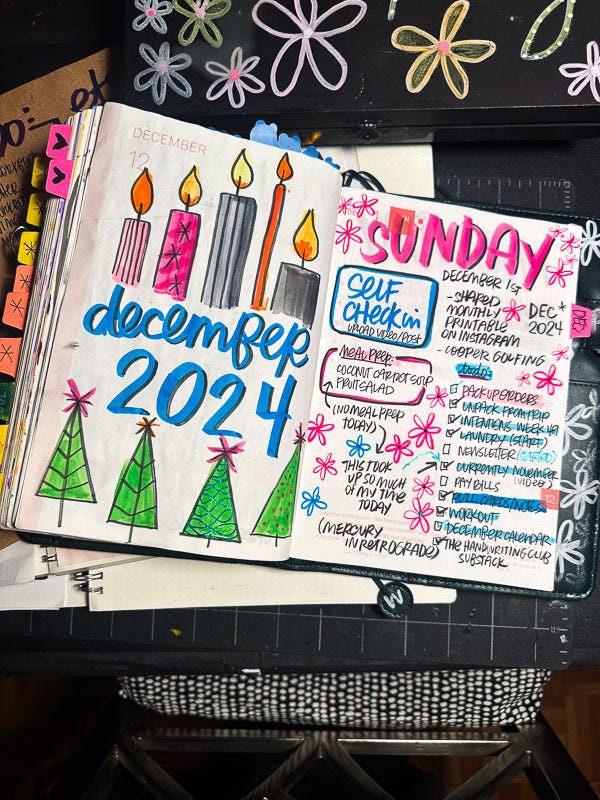 DECEMBER
12
december
2024
SUNDAY
SELF
CHECK IN
UPLOAD VIDEO/POST
MEAL PREP:
COCONUT CARROT SOUP
FRUIT SALAD
(NO MEAL PREP
TODAY)
THIS TOOK
UP SO MUCH
OF MY TIME
TODAY
(MERCURY
IN RETROGRADE)
DECEMBER 1ST
- SHARED
MONTHLY
PRINTABLE
ON INSTAGRAM
- COOPER GOLFING
DEC*
2024
todo:
PACK UP ORDERS
UNPACK FROM TRIP
INTENTIONS WEEK 49
LAUNDRY (START)
NEWSLETTER (STARTED)
CURRENTLY NOVEMBER
(VIDEO)
PAY BILLS
PULL CARDS/NOTES
WORKOUT
DECEMBER CALENDAR
THE HANDWRITING CLUB
SUBSTACK
DEC
12
W